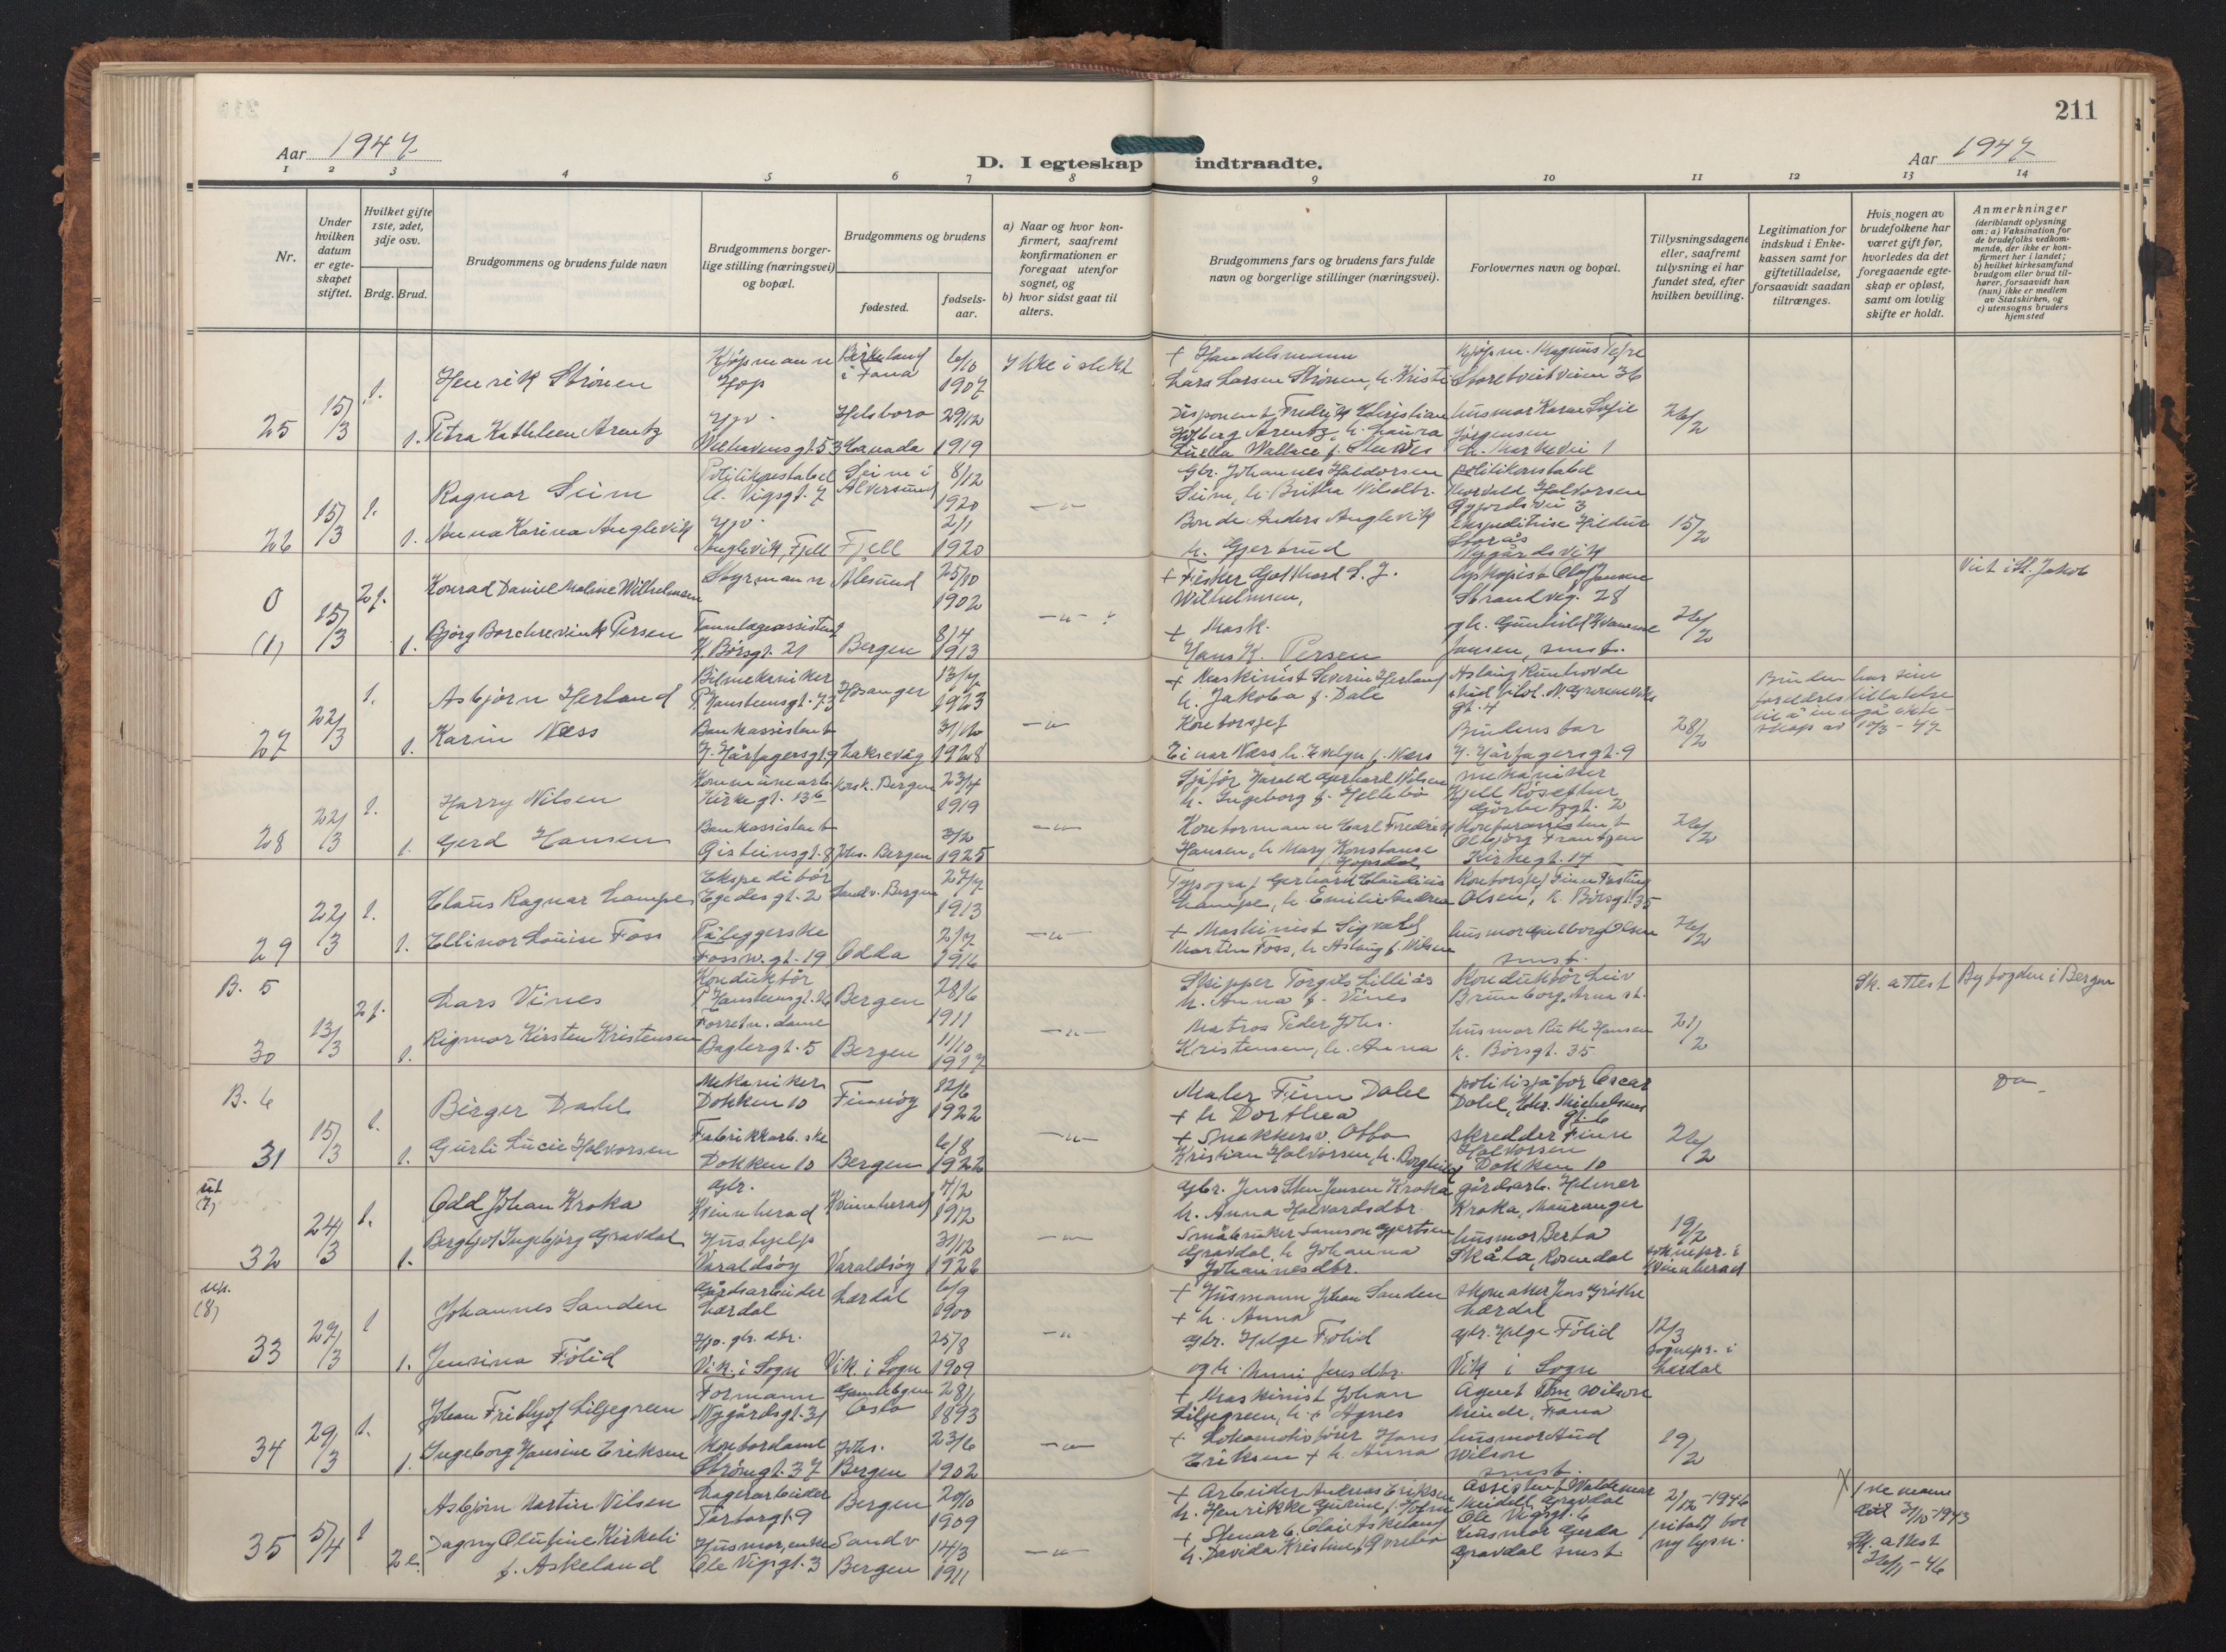 211
Aar 1947
D. I egteskap indtraadte.
Aar 1947
1 2 3 4 5 6 7 8 9 10 11 12 13 14
Nr.
Under hvilken datum er egteskapet stiftet.
Hvilket gifte 1ste, 2det, 3dje osv.
Brdg. Brud.
Brudgommens og brudens fulde navn
Brudgommens borgerlige stilling (næringsvei) og bopæl.
Brudgommens og brudens
fødested.
fødselsaar.
a) Naar og hvor konfirmert, saafremt konfirmationen er foregaat utenfor sognet, og
b) hvor sidst gaat til alters.
Brudgommens fars og brudens fars fulde navn og borgerlige stillinger (næringsvei).
Forlovernes navn og bopæl.
Tillysningsdagene eller, saafremt tillysning ei har fundet sted, efter hvilken bevilling.
Legitimation for indskud i Enkekassen samt for giftetilladelse, forsaavidt saadan tiltrænges.
Hvis nogen av brudefolkene har været gift før, hvorledes da det foregaaende egteskap er opløst, samt om lovlig skifte er holdt.
Anmerkninger
(deriblandt oplysning om: a) Vaksination for de brudefolks vedkommende, der ikke er konfirmert her i landet; b) hvilket kirkesamfund brudgom eller brud tilhører, forsaavidt han (hun) ikke er medlem av Statskirken, og c) utensogns bruders hjemsted
25 15/3 1. Henrik Strönen Kjöpmann Hop Birkeland i Fana 6/10 1907 Ikke i slekt + Handelsmann Lars Larsen Strönen, h. Kristi Kjöpm. Magnus Storetveitveien 36
1. Petra Kathleen Arentz Hjv. Welhavensgt. 53 Canada 29/12 1919 Disponent Fredrik Christian Holberg Arentz, h. Laura Luella Wallace f. husmor Karen Sofie Jörgensen 26/2
26 15/3 1. Ragnar Seim Politikonstabel O. Vigsgt. 7 Seim i Alversund 8/12 1920 — " — Gbr. Johannes Haldorsen Seim, h. Britha Nilsdtr. politikonstabel Thorvald Halvorsen
1. Anna Karina Anglevik Hjv. Anglevik, Fjell Fjell 2/1 1920 Bonde Anders Anglevik h. Gjertrud Ekspeditrise Hildur Storås Nygårdsvik 15/2
0 (1) 15/3 2g. Konrad Daniel Malene Wilhelmsen Styrmann Ålesund 25/10 1902 — " — + Fisker Gotthard S. J. Wilhelmsen, Olaf Jansen Strandveg. 28 Viet i St. Jakob
1. Bjørg Borchrevink Persen Tannlegeassistent K. Börsgt. 21 Bergen 8/4 1913 + Mask. Hans K. Persen og h. Gunhild Jansen, smst. 26/2
27 22/3 1. Asbjörn Herland Bilmekaniker P. Hansteensgt. 73 Hosanger 13/7 1923 — " — + Maskinist Severin Herland h. Jakoba f. Dale Aslaug Runhovde gt. 4 Bruden har sine foreldres tillatelse til å inngå ekteskap av 10/3 - 47
1. Karin Næss Bankassistent H. Hårfagersgt. 9 Laksevåg 31/10 1928 Kontorsjef Einar Næss, h. Evelyn f. Næss Brudens far H. Hårfagersgt. 9 28/2
28 22/3 1. Harry Nilsen Kommunearb. Kirkegt. 13b Korsk. Bergen 23/4 1919 — " — Sjåför Harald Gerhard Nilsen h. Ingeborg f. Hellebö mekaniker Kjell
1. Gerd Hansen Bankassistent Gisteinsgt. 8 Johs. Bergen 3/2 1925 Kontormann Carl Fredrik Hansen, h. Mary Konstanse f. Hopsdal Kontorassistent Olbjörg Frantzen Kirkegt. 14 26/2
29 22/3 1. Claus Ragnar Lampe Ekspeditör Egedesgt. 2 Sandv. Bergen 27/7 1913 — " — Typograf Gerhard Claudius Lampe, h. Emilie Andrea Kontorsjef Finn Olsen, K. Börsgt. 35
1. Ellinor Louise Foss Påleggerske Fossw. gt. 19 Odda 2/7 1916 + Maskinist Sigvald Martin Foss, h. Aslaug f. Nilsen husmor Olsen smst. 26/2
B. 5
30 13/3 2g. Lars Vines Konduktör P. Hansteensgt. Bergen 28/6 1911 — " — Skipper Torgils Lilliås h. Anna f. Vines Konduktör Leiv Brunborg, Arna st. Sk. attest Byfogden i Bergen
1. Rigmor Kirsten Kristensen Forretn. dame Baglergt. 5 Bergen 11/10 1917 Matros Peder Johs. Kristensen, h. Anna husmor Ruth Hansen K. Börsgt. 35 21/2
B. 6
31 15/3 1. Birger Dahl Mekaniker Dokken 10 Finnöy 12/6 1922 — " — Maler Finn Dahl + h. Dorthea politisjåför Oscar Dahl, Chr. Michelsens gt. 6 Do
1. Gurli Lucie Halvorsen Fabrikkarb. ske Dokken 10 Bergen 6/8 1922 + Snekkersv. Otto Kristian Halvorsen, h. Borghild skredder Finn Halvorsen Dokken 10 26/2
ut (7)
32 24/3 1. Odd Johan Kroka Gbr. Kvinnherad Kvinnherad 4/2 1912 — " — Gbr. Jens Sten Jensen Kroka h. Anna Halvardsdtr. gårdarb. Helmer Kroka, Mauranger
1. Bergljot Ingebjörg Gravdal Hushjelp Varaldsöy Varaldsöy 31/12 1926 Småbruker Samson Gjertsen Gravdal, h. Johanna Johannesdtr. husmor Berta Skåla, Rosendal 19/2 soknepr. i Kvinnherad
up. (8)
33 27/3 1 Johannes Sanden Gårdsarbeider Lærdal Lærdal 6/9 1900 — " — + Husmann Johan Sanden + h. Anna skomaker Jens Lærdal
1. Jensina Fölid Hjv. gbr. dtr. Vik i Sogn Vik i Sogn 25/8 1909 gbr. Helge Fölid og h. Anni Jensdtr. gbr. Helge Fölid Vik i Sogn 12/3 Sognepr. i Lærdal
34 29/3 1. Johan Fridtjof Liljegreen Formann Nygårdsgt. 31 Gamlebyen Oslo 28/1 1893 — " — + Maskinist Johan Liljegreen, h. + Agnes Agent Tom Wilson Minde, Fana
1. Ingeborg Hansine Eriksen Kontordame Strömgt. 37 Johs. Bergen 23/6 1902 + Lokomotivförer Hans Eriksen + h. Anna husmor Aud Wilson smst. 19/2
35 5/4 1 Asbjörn Martin Nilsen Lagerarbeider Torborgt. 9 Bergen 20/10 1909 — " — + Arbeider Andreas Eriksen h. Henrikke Gurine f. Assistent Waldemar Meidell Gravdal Ole Vigsgt. 6 21/12 - 1946 ny lysn. X 1ste mann död 3/10 - 1943 Sk. attest 26/1 - 46
2e. Dagny Olufine Kirkeli f. Askeland Husmor, enke Ole Vigsgt. 3 Sandv Bergen 14/3 1911 + Stuearb. Olai Askeland h. Davida Kristine f. husmor Gerda Gravdal smst.